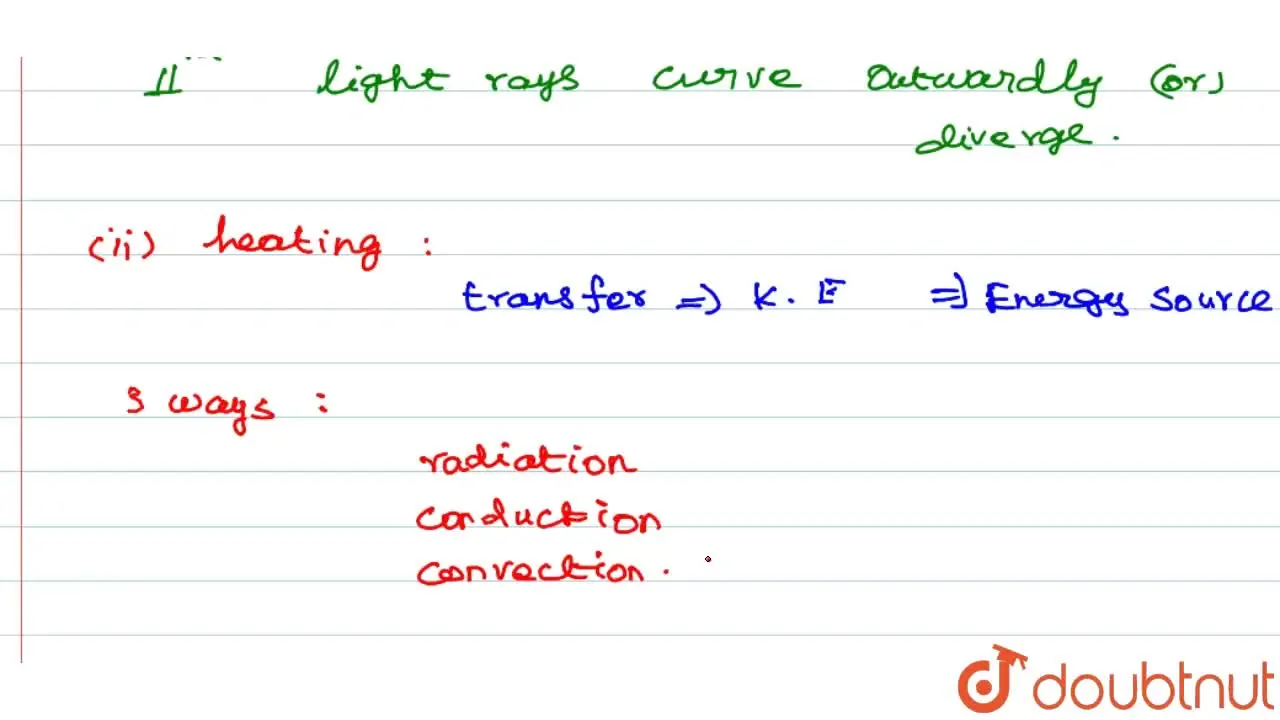 11 light rays curve outwardly (or)
diverge.
(ii) heating :
transfer => K.E => Energy source
3 ways :
radiation
conduction
convection.
doubtnut